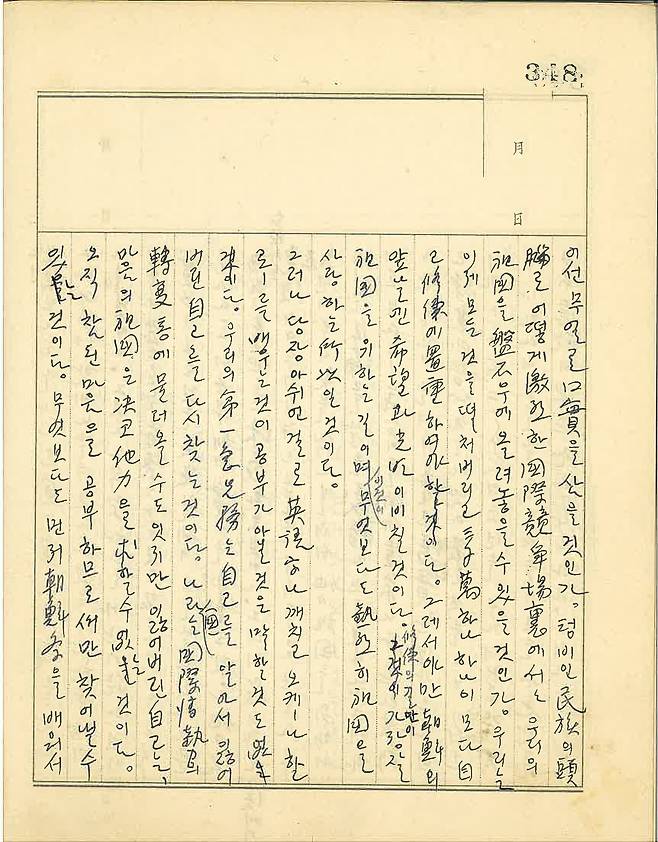 348
月
日
이선 무엇으로 口實을 삼을 것인가. 텅비인 民族의 頭
腦로 어떻게 激烈한 國際競爭場裏에서는 우리의
祖國을 盤石우에 올려놓을 수 있을 것인가. 우리는
이제 모든 것을 떨처버리고 三千萬 하나하나이 모다 自
己修養에 置重하여야 할것이다. 그래서야만 朝鮮의
앞날엔 希望과 光明이 비칠 것이다. 修養의 길만이 가장
祖國을 위하는 길이며 무엇보다도 熱烈히 祖國을
사랑하는 所以일 것이다.
그러나 당장 아쉬언 걸로 英語하나 깨치고 오케ー나 할
로ー를 배우는 것이 공부가 아닐 것은 말할 것도 없을
것이다. 우리의 第一急先務는 自己를 알아서 잃어
버린 自己를 다시 찾는 것이다. 나라는 國際情勢의
轉變통에 물러올 수도 잇지만 잃어버린 自己는,
마음의 祖國은 決코 他力을 求할 수 없을 것이다.
오직 참된 마음으로 공부하므로서만 찾어낼 수
있을 것이다. 무엇보다도 먼저 朝鮮을 배워서